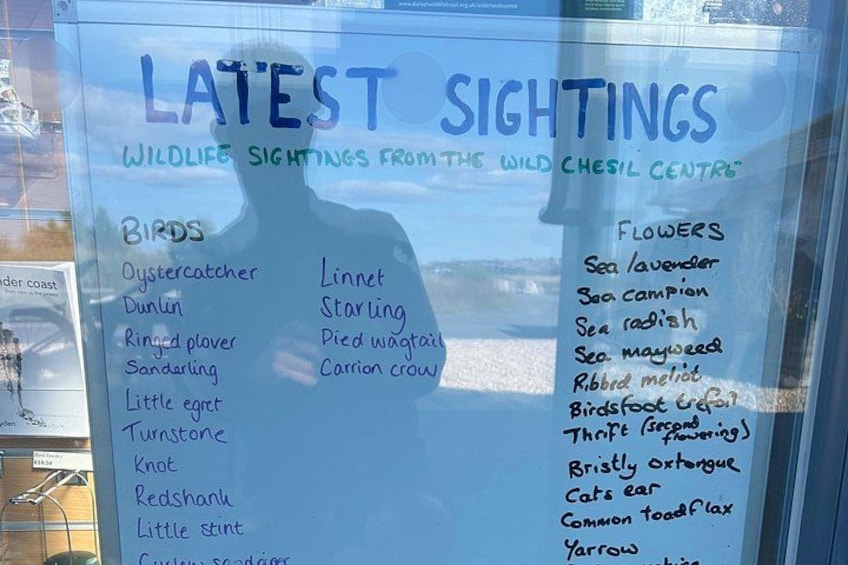 LATEST SIGHTINGS
WILDLIFE SIGHTINGS FROM THE WILD CHESIL CENTRE
BIRDS
Oystercatcher
Dunlin
Ringed plover
Sanderling
Little egret
Turnstone
Knot
Redshank
Little stint
Curlew sandpiper
Linnet
Starling
Pied wagtail
Carrion crow
FLOWERS
Sea lavender
Sea campion
Sea radish
Sea mayweed
Ribbed meliot
Birdsfoot trefoil
Thrift (second
flowering)
Bristly oxtongue
Cats ear
Common toadflax
Yarrow
nder coast
yden